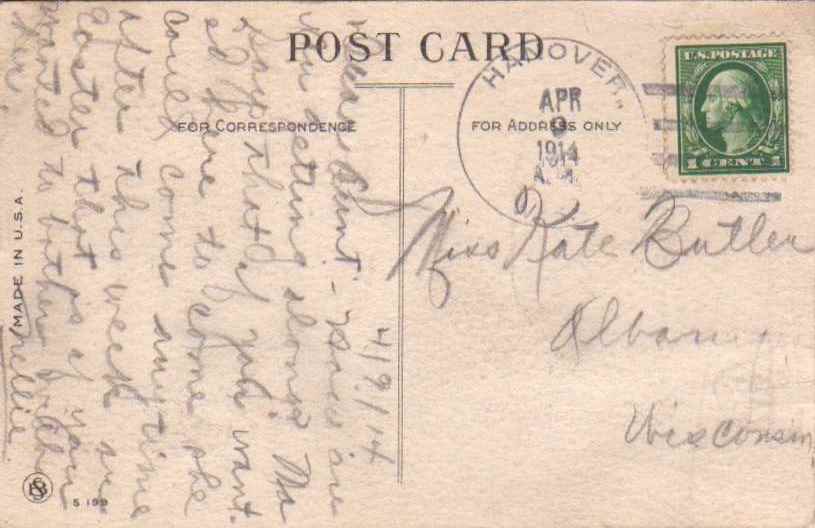 POST CARD
FOR CORRESPONDENCE
FOR ADDRESS ONLY
HANOVER,
APR
9
1914
A.M.
U.S. POSTAGE
1 CENT 1
Miss Kate Butler
Albany
Wisconsin
4/9/14
Dear Aunt - How are
you getting along? Ma
says that if you want-
ed to come she
could come anytime
after this week
Easter that is if you
wanted to bother with
her. Nellie.
MADE IN U.S.A.
S 199